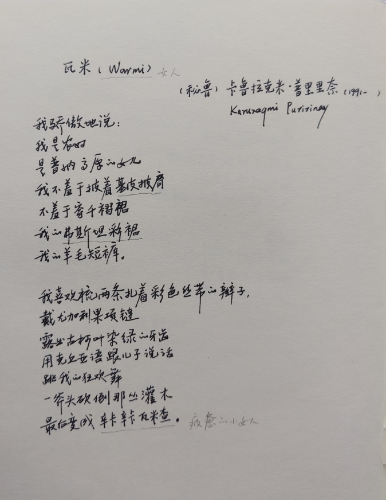 瓦米(Warmi) 女人
(秘鲁)卡鲁拉克米·普里里奈(1991-
Karuraqmi Puririnay
我骄傲地说:
我是
是普纳高原的女儿
我不羞于披着基皮披肩
不羞于穿千褶裙
我的弗斯坦彩裙
我的羊毛短裤。
我喜欢梳两条扎着彩色丝带的辫子,
戴尤加利果项链
露出古柯叶染绿的牙齿
用克丘亚语跟儿子说话
跳我的狂欢舞
一斧头砍倒那丛灌木
最后变成辛卡辛卡瓦米查。 疲惫的小女人